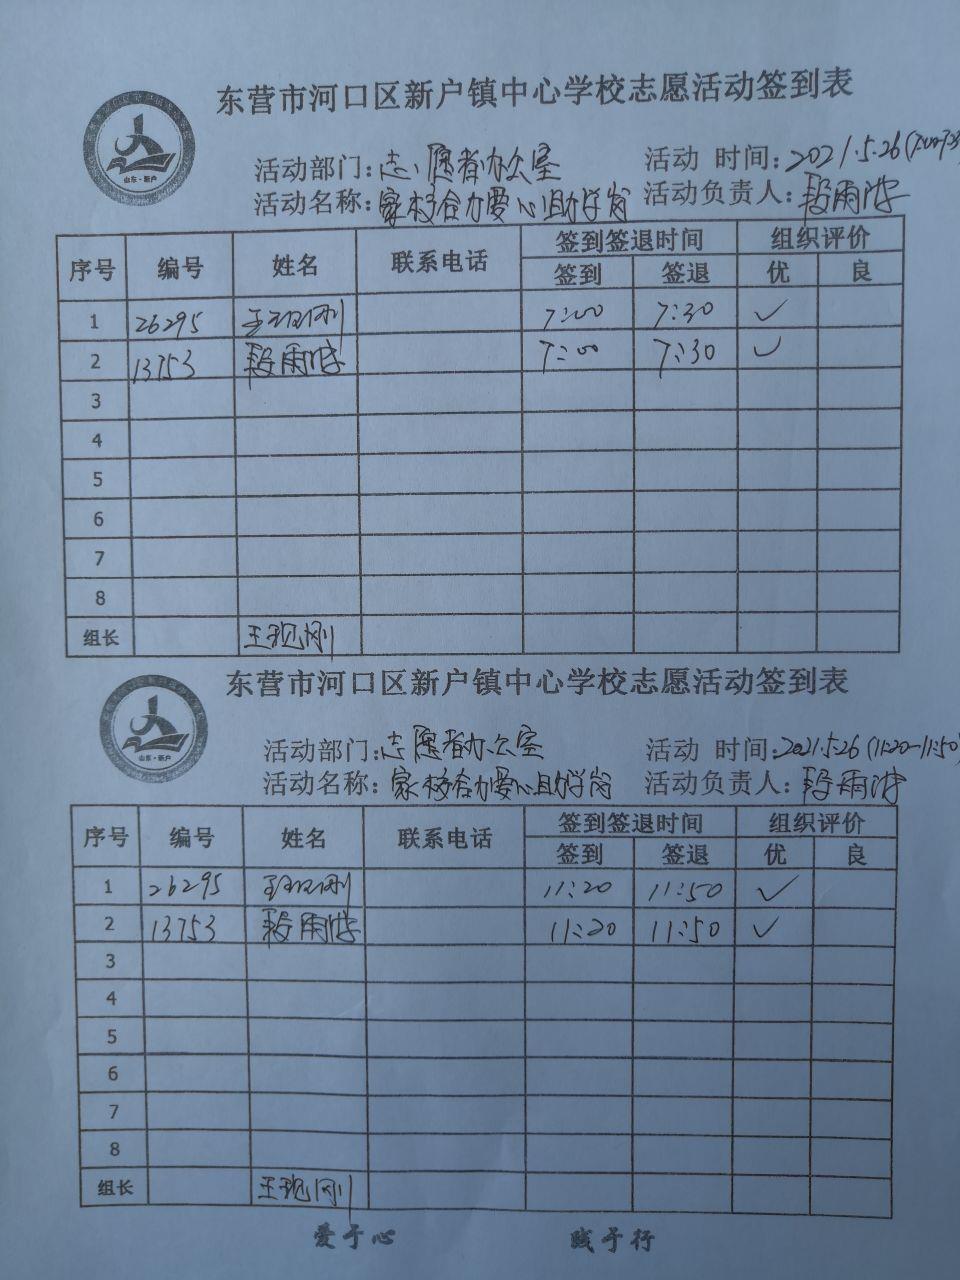 东营市河口区新户镇中心学校志愿活动签到表
山东·新户
活动部门:志愿者办公室 活动 时间:2021.5.26(7:00-7:30
活动名称:家校合力爱心助学岗 活动负责人:段雨
序号 编号 姓名 联系电话 签到签退时间 组织评价
签到 签退 优 良
1 26295 王现刚 7:00 7:30 ✓
2 13753 段雨 7:00 7:30 ✓
3
4
5
6
7
8
组长 王现刚
东营市河口区新户镇中心学校志愿活动签到表
山东·新户
活动部门:志愿者办公室 活动 时间:2021.5.26(11:20-11:50)
活动名称:家校合力爱心助学岗 活动负责人:段雨
序号 编号 姓名 联系电话 签到签退时间 组织评价
签到 签退 优 良
1 26295 王现刚 11:20 11:50 ✓
2 13753 段雨 11:20 11:50 ✓
3
4
5
6
7
8
组长 王现刚
爱于心 践于行